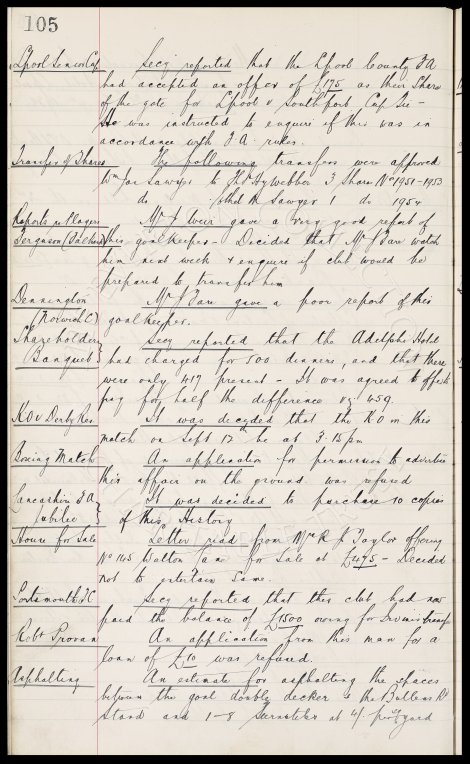 105
Lpool Senior Cup Secy reported that the Lpool County F A
had accepted an offer of £175 as their share
of the gate for Lpool v Southport Cup tie -
He was instructed to enquire if this was in
accordance with F.A. rules.
Transfer of Shares The following transfers were approved
Wm Jas Sawyer to Thos Hy Webber 3 Shares No 1951-1953
do Ethel R Sawyer 1 do 1954
Reports re Players Mr J Weir gave a very good report of
Ferguson (Falkirk) this goalkeeper - Decided that Mr J Fare watch
him next week & enquire if club would be
prepared to transfer him
Dennington Mr J Fare gave a poor report of this
(Norwich C) goalkeeper.
Shareholders Secy reported that the Adelphi Hotel
Banquet had charged for 500 dinners, and that there
were only 417 present - It was agreed to offer to
pay for half the difference viz 459.
KO v Derby Res It was decided that the KO in this
match on Sept 17 be at 3.15 pm
Boxing Match An application for permission to advertise
this affair on the ground was refused
Lancashire F A It was decided to purchase 10 copies
Jubilee of this History
House for Sale Letter read from Mr R J Taylor offering
No 145 Walton Lane for Sale at £475 - Decided
not to entertain same.
Portsmouth FC Secy reported that this club had now
paid the balance of £1500 owing for Irvine's transfer
Robt Provan An application from this man for a
loan of £10 was refused.
Asphalting An estimate for asphalting the spaces
between the goal double decker & the Bullens Rd
Stand and 1-8 at 4/- per yard